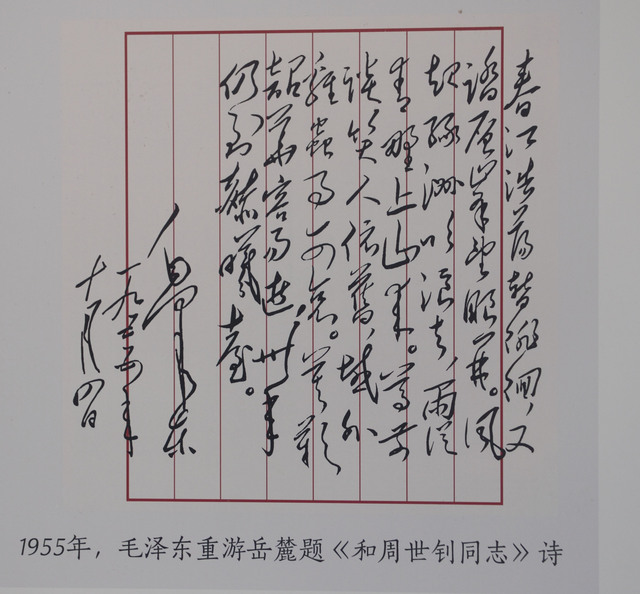 春江浩荡暂徘徊，又
踏层峰望眼开。风
起绿洲吹浪去，雨从
青野上山来。尊前
谈笑人依舊，域外
雞蟲事可哀。莫歎
韶华容易逝，卅年
仍到赫曦臺。
毛泽东
一九五五年
十月四日
1955年，毛泽东重游岳麓题《和周世钊同志》诗